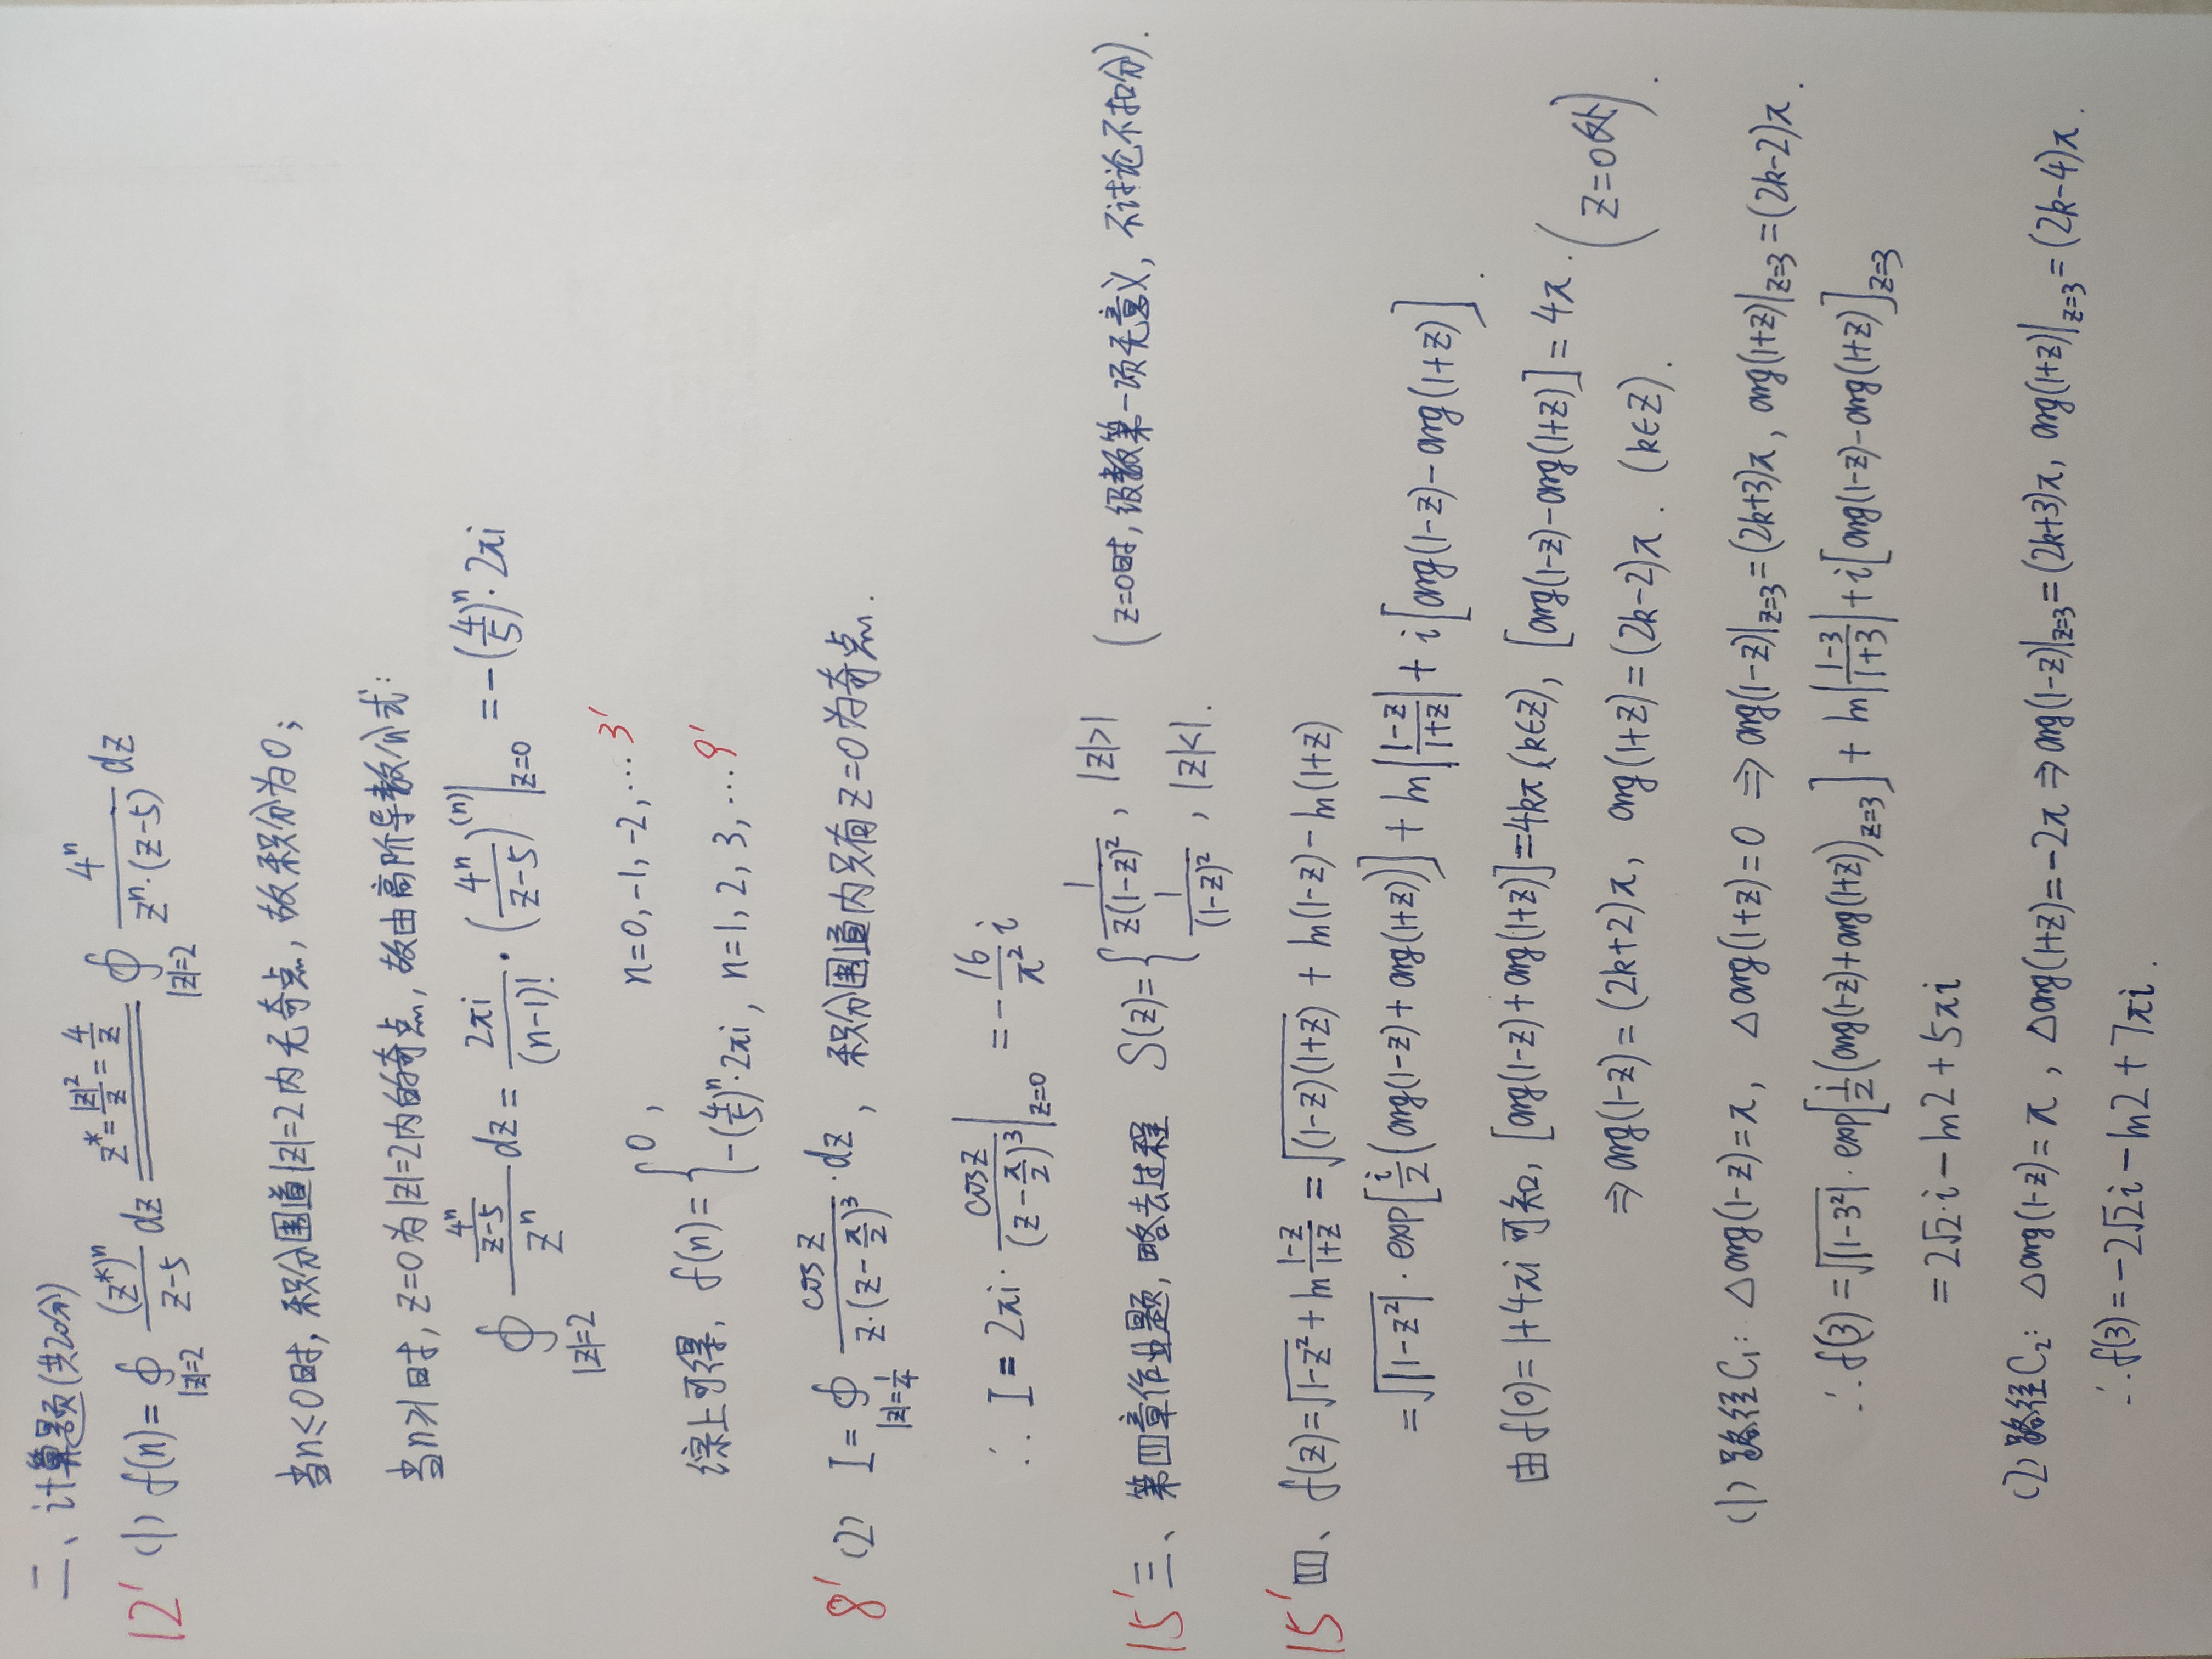 二、计算题(共20分)
12' (1) f(n)=∮_{|z|=2} (z*)^n/(z-5) dz \overset{z*=|z|²/z=4/z}{=} ∮_{|z|=2} 4^n/(z^n·(z-5)) dz
当n≤0时, 积分围道|z|=2内无奇点, 故积分为0;
当n≥1时, z=0为|z|=2内的奇点, 故由高阶导数公式:
∮_{|z|=2} (4^n/(z-5))/z^n dz = 2πi/(n-1)! · (4^n/(z-5))^{(n)}|_{z=0} = -(4/5)^n·2πi
综上可得, f(n)={ 0, n=0,-1,-2,… 3'
-(4/5)^n·2πi, n=1,2,3,… 9'
8' (2) I=∮_{|z|=1/4} cosz/(z·(z-π/2)³)·dz, 积分围道内只有z=0为奇点.
∴ I=2πi·cosz/(z-π/2)³|_{z=0} = -16/π² i
15' 三、第四章作业题, 略去过程 S(z)={ 1/(z(1-z)²), |z|>1 (z=0时, 级数第一项无意义, 不讨论不扣分).
1/(1-z)², |z|<1.
15' 四、f(z)=√(1-z²)+ln (1-z)/(1+z) = √((1-z)(1+z)) + ln(1-z)-ln(1+z)
=√|1-z²|·exp[i/2(arg(1-z)+arg(1+z))] + ln|(1-z)/(1+z)| + i[arg(1-z)-arg(1+z)].
由f(0)=1+4πi可知, [arg(1-z)+arg(1+z)]=4kπ(k∈Z), [arg(1-z)-arg(1+z)]=4π.
⇒arg(1-z)=(2k+2)π, arg(1+z)=(2k-2)π. (k∈Z). (z=0处).
(1) 路径C₁: Δarg(1-z)=π, Δarg(1+z)=0 ⇒arg(1-z)|_{z=3}=(2k+3)π, arg(1+z)|_{z=3}=(2k-2)π.
∴f(3)=√|1-3²|·exp[i/2(arg(1-z)+arg(1+z))_{z=3}] + ln|(1-3)/(1+3)|+i[arg(1-z)-arg(1+z)]_{z=3}
=2√2·i-ln2+5πi
(2) 路径C₂: Δarg(1-z)=π, Δarg(1+z)=-2π⇒arg(1-z)|_{z=3}=(2k+3)π, arg(1+z)|_{z=3}=(2k-4)π.
∴f(3)=-2√2i-ln2+7πi.